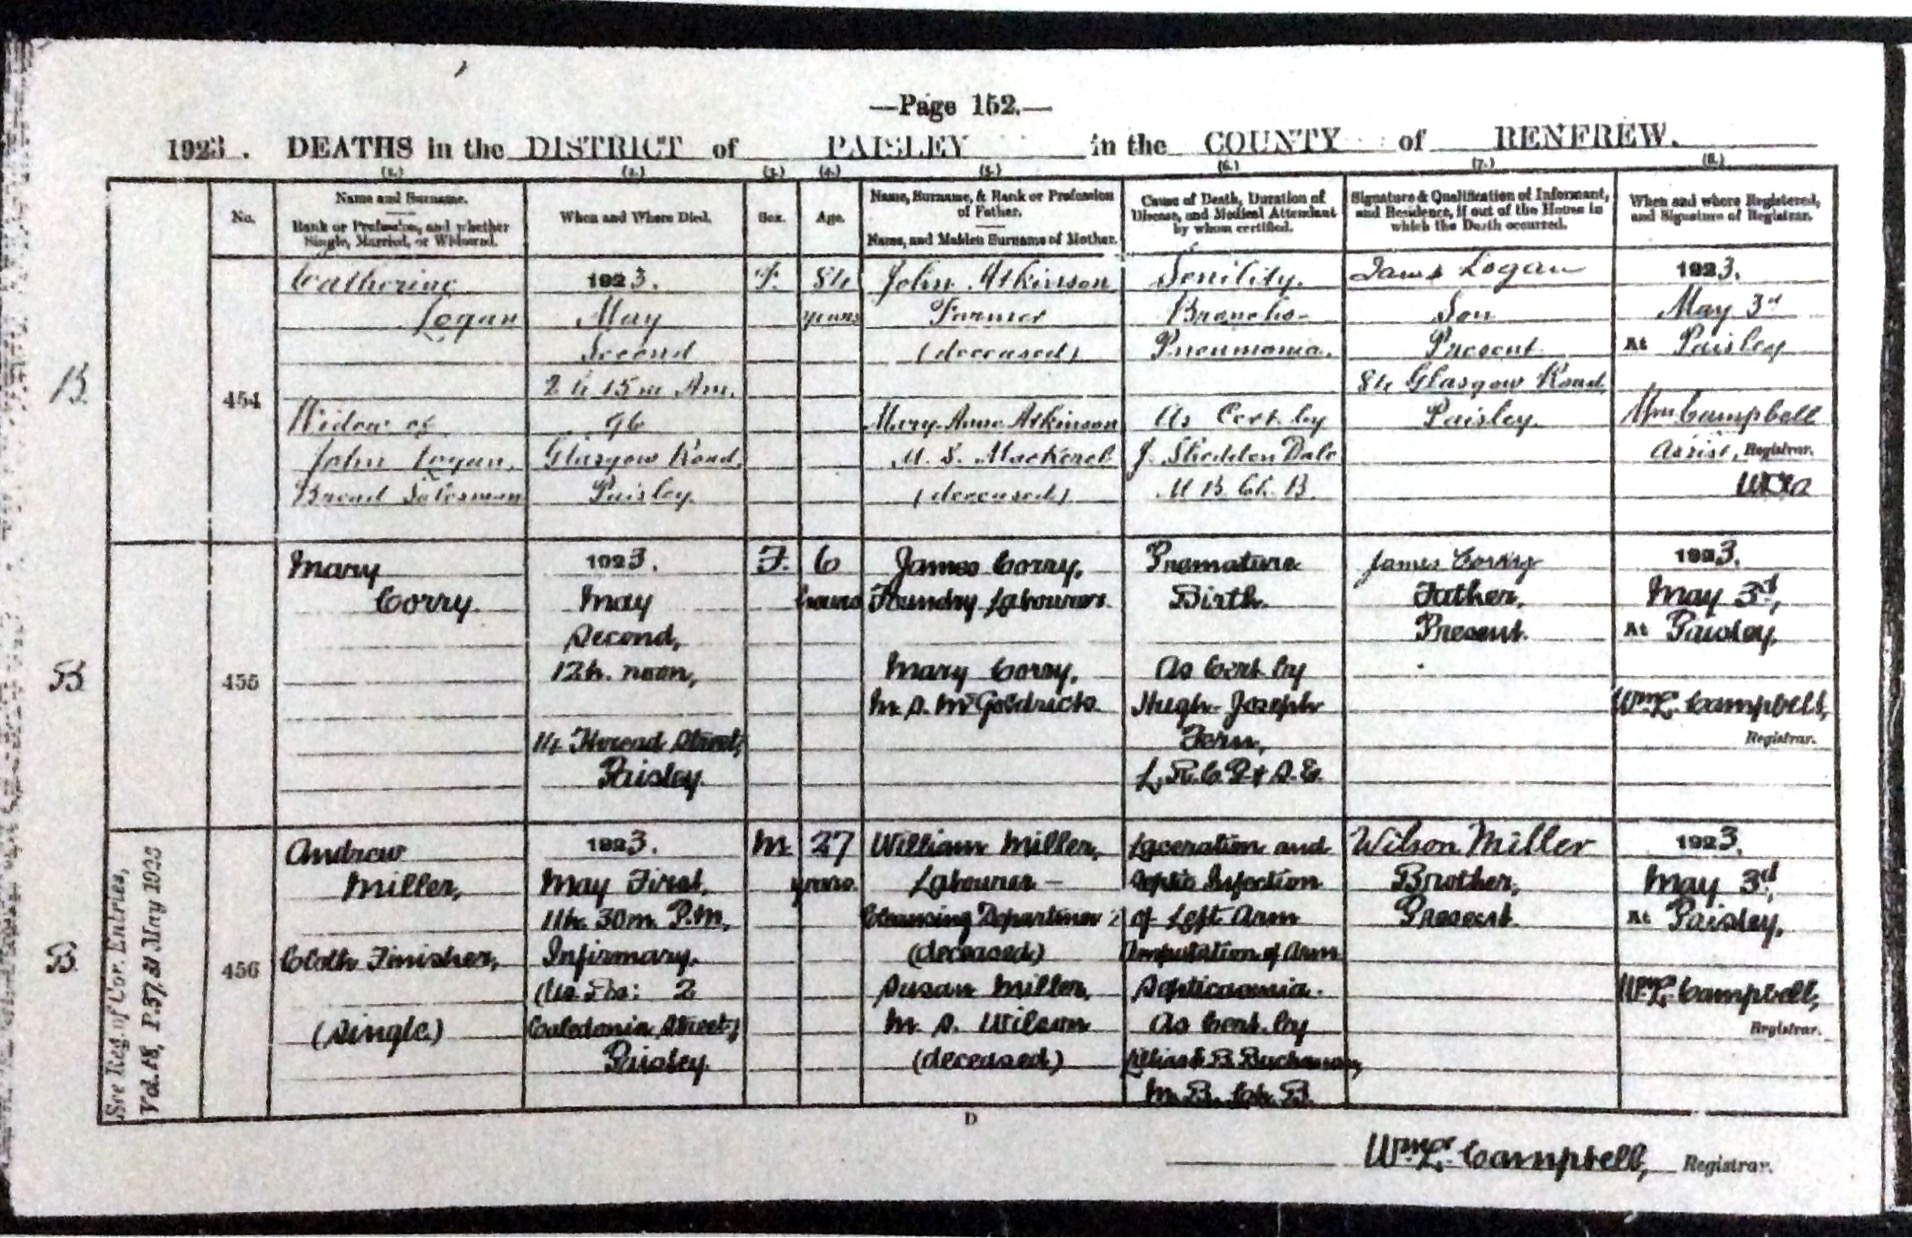 —Page 152.—
1923. DEATHS in the DISTRICT of PAISLEY in the COUNTY of RENFREW.
(1.) (2.) (3.) (4.) (5.) (6.) (7.) (8.)
No.
Name and Surname.
Rank or Profession, and whether
Single, Married, or Widowed.
When and Where Died.
Sex.
Age.
Name, Surname, & Rank or Profession
of Father.
Name, and Maiden Surname of Mother.
Cause of Death, Duration of
Disease, and Medical Attendant
by whom certified.
Signature & Qualification of Informant,
and Residence, if out of the House in
which the Death occurred.
When and where Registered,
and Signature of Registrar.
B.
454
Catherine
Logan
Widow of
John Logan,
Bread Salesman
1923.
May
Second
2 h 15 m Am.
96
Glasgow Road,
Paisley.
F.
84
years
John Atkinson
Farmer
(deceased)
Mary Anne Atkinson
M. S.
(deceased)
Senility.
Broncho-
Pneumonia.
As Cert by
J. Shedden Dale
M B Ch. B.
James Logan
Son
Present
84 Glasgow Road
Paisley.
1923.
May 3rd
At Paisley
Wm Campbell
Assist. Registrar.
B.
455
Mary
Corry.
1923.
May
Second,
12h. noon,
14 Thread Street,
Paisley.
F.
6
hours
James Corry,
Foundry Labourer.
Mary Corry,
M. S. McGoldrick.
Premature
Birth.
As Cert by
Hugh Joseph
L. R. C. P & S. E.
James Corry
Father,
Present.
1923.
May 3rd,
At Paisley,
Wm L. Campbell,
Registrar.
See Reg. of Cor. Entries,
Vol. 18, P. 37, 31 May 1923
B.
456
Andrew
Miller,
Cloth Finisher,
(Single)
1923.
May First,
11h. 30m. P.M.,
Infirmary.
(Us. Res: 2
Caledonia Street,)
Paisley.
M.
27
years.
William Miller,
Labourer —
Cleansing Department
(deceased)
Susan Miller,
M. S. Wilson
(deceased)
Laceration and
Septic Infection
of Left Arm
Amputation of Arm
Septicaemia.
As Cert. by
B. Buchanan,
M. B. Ch. B.
Wilson Miller
Brother,
Present.
1923.
May 3rd,
At Paisley,
Wm L. Campbell,
Registrar.
D
Wm L. Campbell, Registrar.